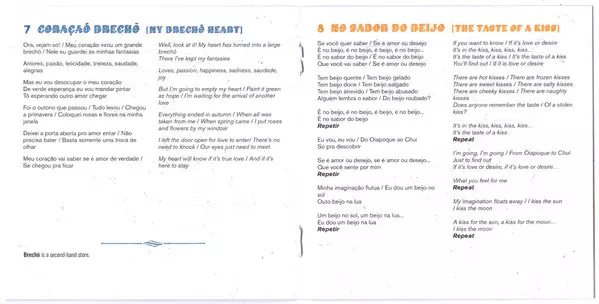 7 CORAÇAÓ BRECHÓ (MY BRECHÓ HEART)
Ora, vejam só! / Meu coração virou um grande
brechó / Nele eu guardei as minhas fantasias
Amores, paixão, felicidade, tristeza, saudade,
alegrias
Mas eu vou desocupar o meu coração
De verde esperança eu vou mandar pintar
Tô esperando outro amor chegar
Foi o outono que passou / Tudo levou / Chegou
a primavera / Coloquei rosas e flores na minha
janela
Deixei a porta aberta pro amor entrar / Não
precisa bater / Basta somente uma troca de
olhar
Meu coração vai saber se é amor de verdade /
Se chegou pra ficar
Well, look at it! My heart has turned into a large
brechó
There I've kept my fantasies
Loves, passion, happiness, sadness, saudade,
joy
But I'm going to empty my heart / Paint it green
as hope / I'm waiting for the arrival of another
love
Everything ended in autumn / When all was
taken from me / When spring came / I put roses
and flowers by my window
I left the door open for love to enter/ There's no
need to knock / Our eyes just need to meet
My heart will know if it's true love / And if it's
here to stay
Brechó is a second-hand store.
8 NO SABOR DO BEIJO (THE TASTE OF A KISS)
Se você quer saber / Se é amor ou desejo
É no beijo, é no beijo, é no beijo, é no beijo...
É no sabor do beijo / É no sabor do beijo
Que você vai saber / Se é amor ou desejo
Tem beijo quente / Tem beijo gelado
Tem beijo doce / Tem beijo salgado
Tem beijo atrevido / Tem beijo abusado
Alguém lembra o sabor / Do beijo roubado?
É no beijo, é no beijo, é no beijo, é no beijo...
É no sabor do beijo
Repetir
Eu vou, eu vou / Do Oiapoque ao Chuí
Só pra descobrir
Se é amor ou desejo, se é amor ou desejo...
Que você sente por mim
Repetir
Minha imaginação flutua / Eu dou um beijo no
sol
Outo beijo na lua
Um beijo no sol, um beijo na lua...
Eu dou um beijo na lua
Repetir
If you want to know / If it's love or desire
It's in the kiss, kiss, kiss, kiss...
It's the taste of a kiss / It's the taste of a kiss
You'll find out / If it is love or desire
There are hot kisses / There are frozen kisses
There are sweet kisses / There are salty kisses
There are cheeky kisses / There are naughty
kisses
Does anyone remember the taste / Of a stolen
kiss?
It's in the kiss, kiss, kiss, kiss...
It's the taste of a kiss
Repeat
I'm going, I'm going / From Oiapoque to Chuí
Just to find out
If it's love or desire, if it's love or desire...
What you feel for me
Repeat
My imagination floats away / I kiss the sun
I kiss the moon
A kiss for the sun, a kiss for the moon...
I kiss the moon
Repeat